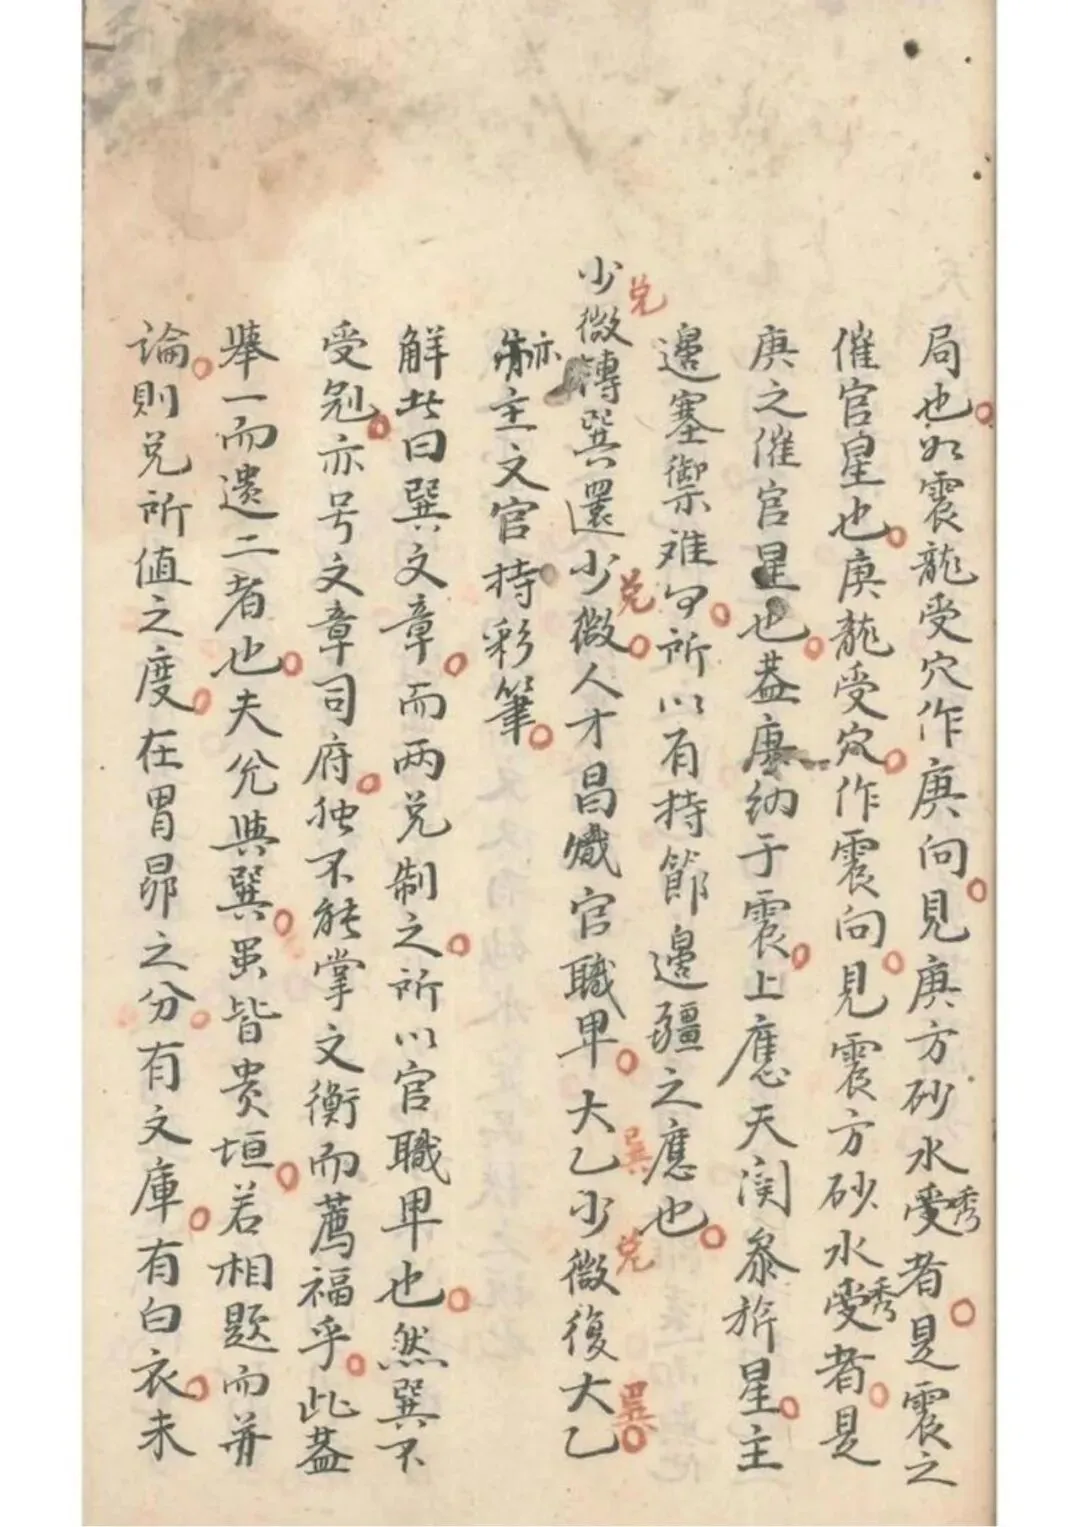 局也如震龍受穴作庚向見庚方砂水受秀者是震之
催官星也庚龍受穴作震向見震方砂水受秀者是
庚之催官星也葢庚納于震上應天関叅旂星主
邉塞禦难旳所以有持節邉疆之應也
少微轉巽還少微人才昌熾官職卑大乙少微復大乙
兌 兌 巽 兌 巽
亦主文官持彩筆
觧此曰巽文章而两兌制之所以官職卑也然巽不
受剋亦号文章司府独不能掌文衡而薦福乎此葢
舉一而遗二者也夫兊與巽虽皆贵垣若相題而并
論則兌所值之度在胃昴之分有文庫有白衣未